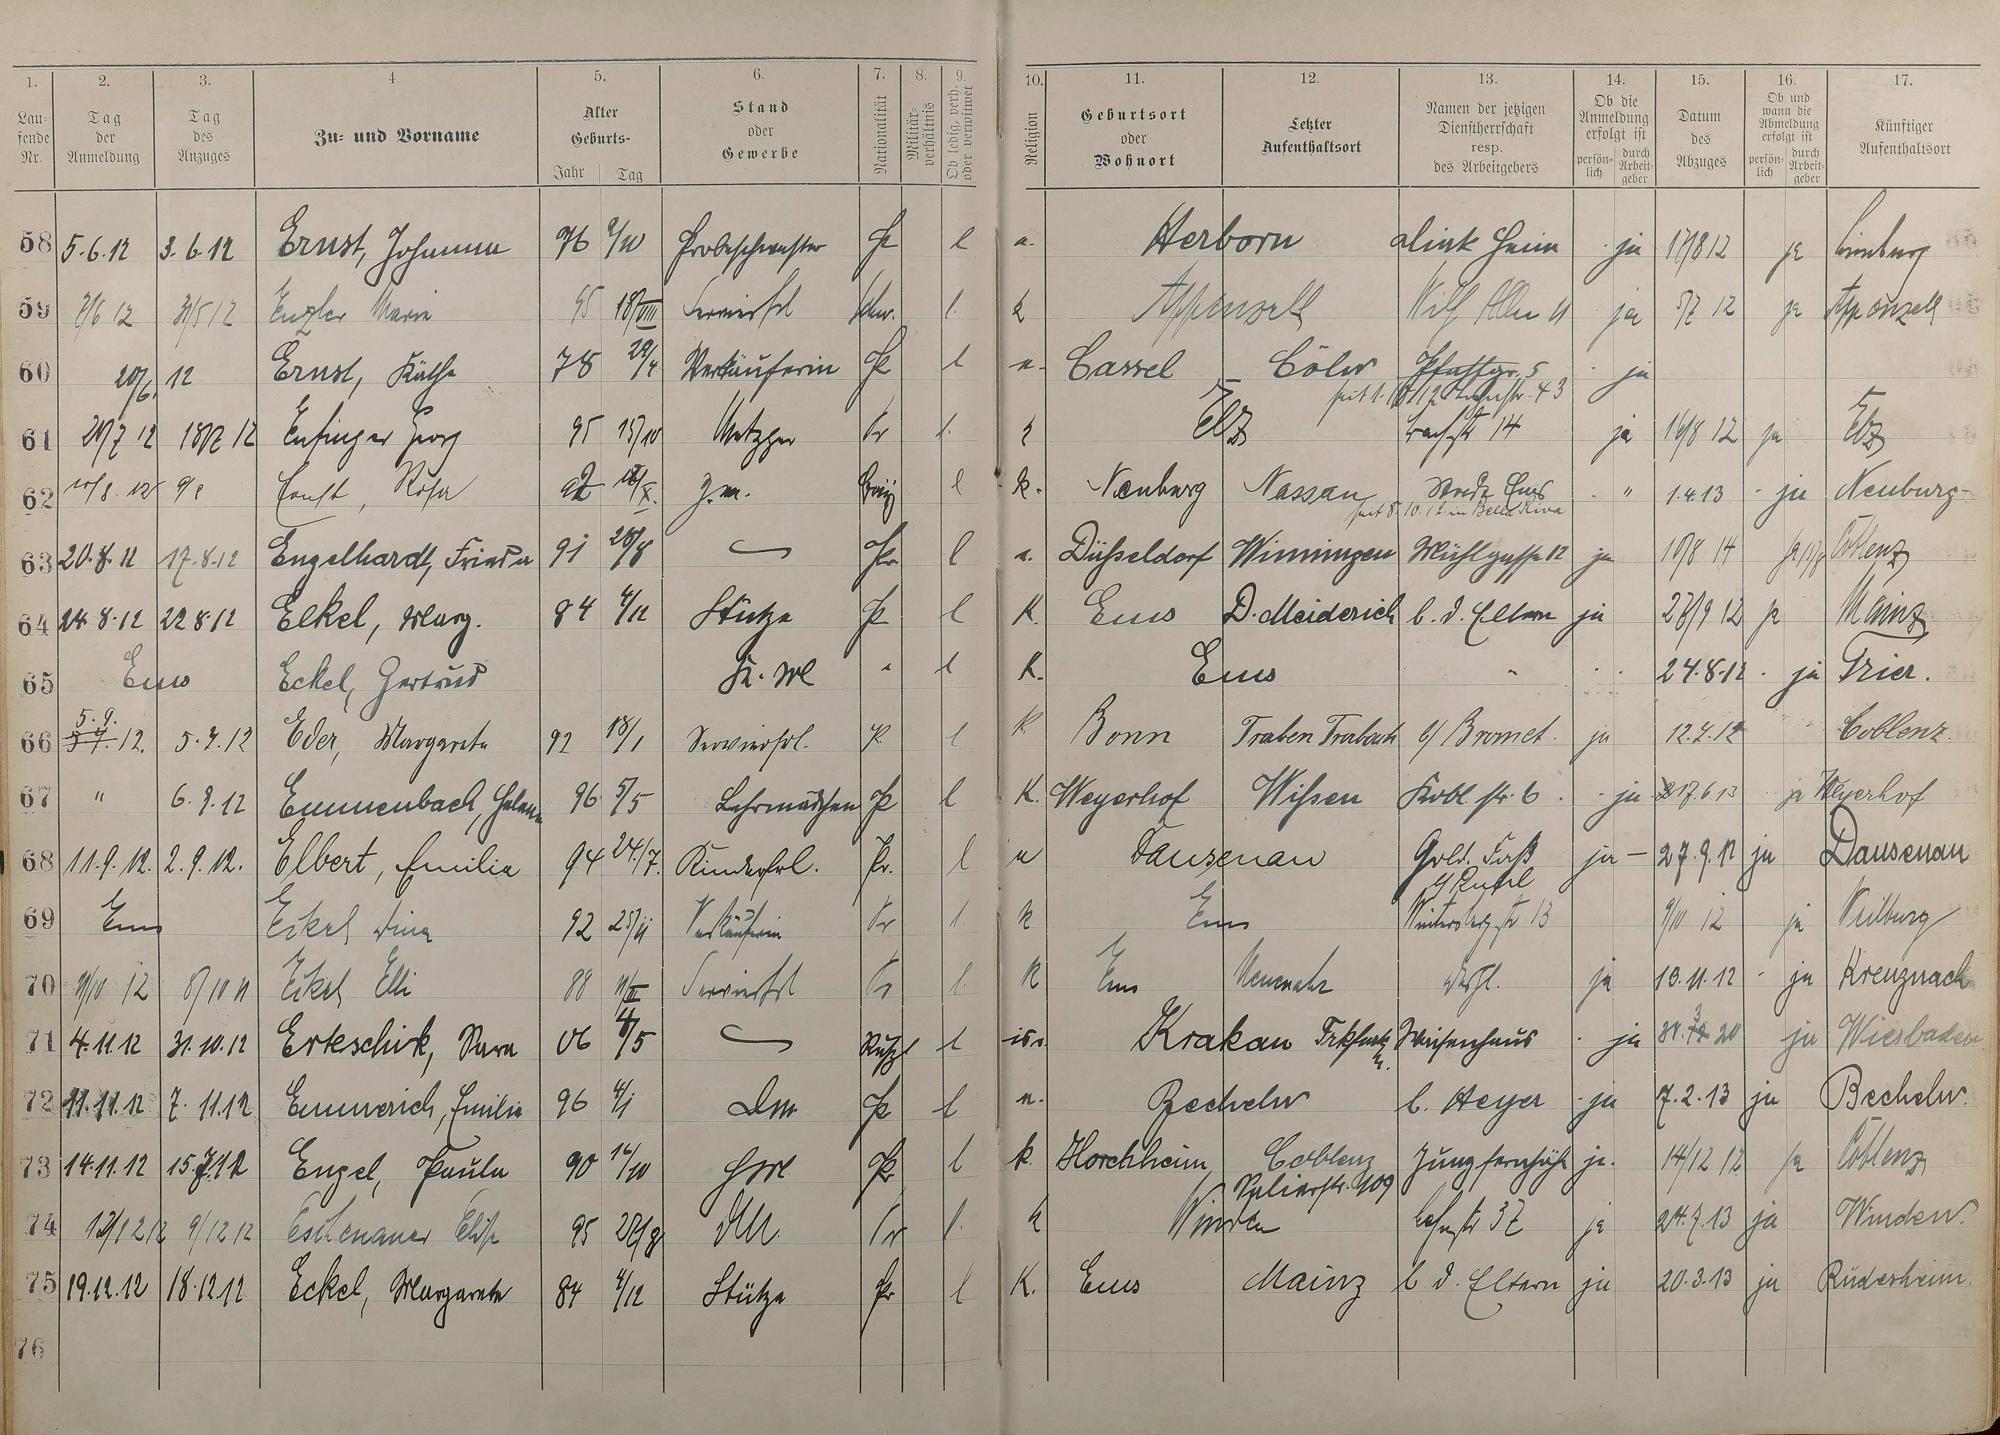 1. 2. 3. 4. 5. 6. 7. 8. 9. 10. 11. 12. 13. 14. 15. 16. 17.
Lau-fende Nr. Tag der Anmeldung Tag des Anzuges Zu- und Vorname Alter Geburts- Jahr Tag Stand oder Gewerbe Nationalität Militär-verhältnis Ob ledig, verh. oder verwitwet Religion Geburtsort oder Wohnort Letzter Aufenthaltsort Namen der jetzigen Dienstherrschaft resp. des Arbeitgebers Ob die Anmeldung erfolgt ist persön-lich durch Arbeit-geber Datum des Abzuges Ob und wann die Abmeldung erfolgt ist persön-lich durch Arbeit-geber Künftiger Aufenthaltsort
58 5.6.12 3.6.12 Ernst, Johanna 76 Probeschwester Pr l Herborn ja 17/8 12 ja Limburg
59 7/6 12 31/5 12 Enzler Marie 95 18/VIII Servierfrl Schw. l. k Appenzell ja 5/7 12 ja Appenzell
60 20/6 12 Ernst, Käthe 78 Verkäuferin Pr l Cassel Cöln ja
seit 1.10 12 43
61 20/7 12 18/7 12 Georg 95 15/10 Metzger Pr l. k Elz 14 ja 16/8 12 ja Elz
62 10/8. 12 9/8 Ernst, Rosa 92 l k. Neuburg Nassau " 1.4.13 ja Neuburg
seit 8.10.12 in Bella Riva
63 20.8.12 17.8.12 Engelhardt, Frieda 91 28/8 Pr l Düsseldorf Winningen Mühlgasse 12 ja 10/8 14 ja Coblenz
64 24.8.12 22.8.12 Eckel, Marg. 84 4/12 Stütze Pr l K. Ems D. Meiderich b. d. Eltern ja 27/9 12 ja Mainz
65 Ems Eckel, Gertrud " l K. Ems " 24.8.12 ja Trier.
66 5.9. 12. 5.9.12 Eder, Margarete 92 18/1 Servierfrl. P l k Bonn Traben Trabach b/ Bromet. ja 12.9.12 Coblenz.
67 " 6.9.12 Emmenbach, Helene 96 5/5 Lehrmädchen Pr l K. Weyerhof Wissen Kobl. str. 6 ja 17.6.13 ja Weyerhof
68 11.9.12. 2.9.12. Elbert, Emilie 94 24./7. Kinderfrl. Pr. l Dausenau Gold. Faß ja — 27.9.12 ja Dausenau
69 Ems Eckel Dina 92 25/11 Verkäuferin Pr l. k Ems Wintersbergstr 13 9/10 12 ja Weilburg
70 9/10 12 8/10 12 Eckel Elli 88 Servierfrl Pr l. k Ems Neuenahr ja 13.11.12 ja Kreuznach
71 4.11.12 31.10.12 Erteschik, Sara 06 4/5 Rußl l isr. Krakau Frkfurt Waisenhaus ja 20 ja Wiesbaden
72 11.11.12 7.11.12 Emmerich, Emilie 96 4/1 Dm Pr l Becheln b. Heyer ja 7.2.13 ja Becheln.
73 14.11.12 15.7.12 Engel, Paula 90 Pr l k. Horchheim, Coblenz Jungfernhöhe ja. 14/12 12 ja Coblenz
109
74 13/12 12 9/12 12 Eschenauer Elise 95 DM Pr l. k Winden 37 ja 24.7.13 ja Winden.
75 19.12.12 18.12.12 Eckel, Margarete 84 4/12 Stütze Pr l K. Ems Mainz b d. Eltern ja 20.3.13 ja Rüdesheim.
76